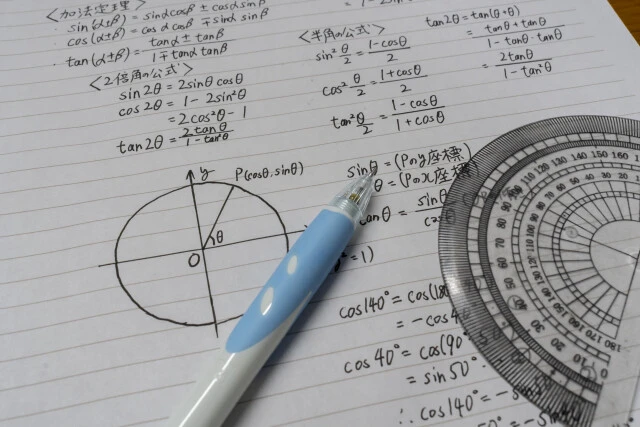 〈加法定理〉
sin(α±β) = sinαcosβ ± cosαsinβ
cos(α±β) = cosα cosβ ∓ sinα sinβ
tan(α±β) = tanα ± tanβ / 1∓tanα tanβ
〈2倍角の公式〉
sin2θ = 2sinθ cosθ
cos2θ = 1 - 2sin²θ
= 2cos²θ - 1
tan2θ = 2tanθ / 1-tan²θ
〈半角の公式〉
sin²θ/2 = 1-cosθ / 2
cos²θ/2 = 1+cosθ / 2
tan²θ/2 = 1-cosθ / 1+cosθ
tan2θ = tan(θ+θ)
= tanθ + tanθ / 1-tanθ·tanθ
= 2tanθ / 1-tan²θ
y
P(cosθ, sinθ)
θ
O
sinθ = (Pのy座標)
θ = (Pのx座標)
tanθ = sinθ
= 1)
cos140° = cos(180
= -cos4
cos40° = cos(90°
= sin50°
∴ cos140° = -sin